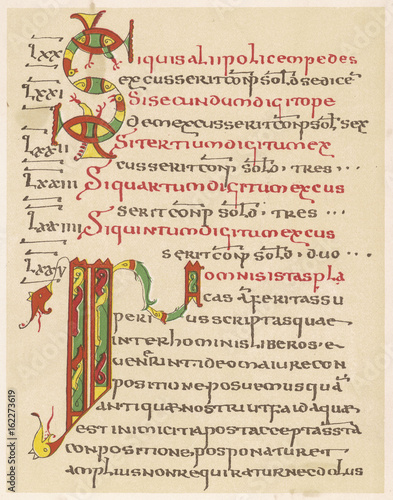 LXX Siquisaliipolicempedes
excusseritconp sold sedice
LXXI Sisecundumdigitope
demexcusseritconp sold sex
LXXII Sitertiumdigitumex
cusseritconp sold tres
LXXIII Siquartumdigitumexcus
seritconp sold tres
LXXIIII Siquintumdigitumexcus
seritconp sold duo
LXXV Inomnisistaspla
cas
periusscriptasquae
interhominisliberose
uenerint ideomaiorecon
positioneposuemusqua
antiquaenostriutfaidaquae
estinimicitiapostacceptassta
conpositioneposponaturet
ampliusnonrequiraturnecdolus
Adobe Stock | #162273619